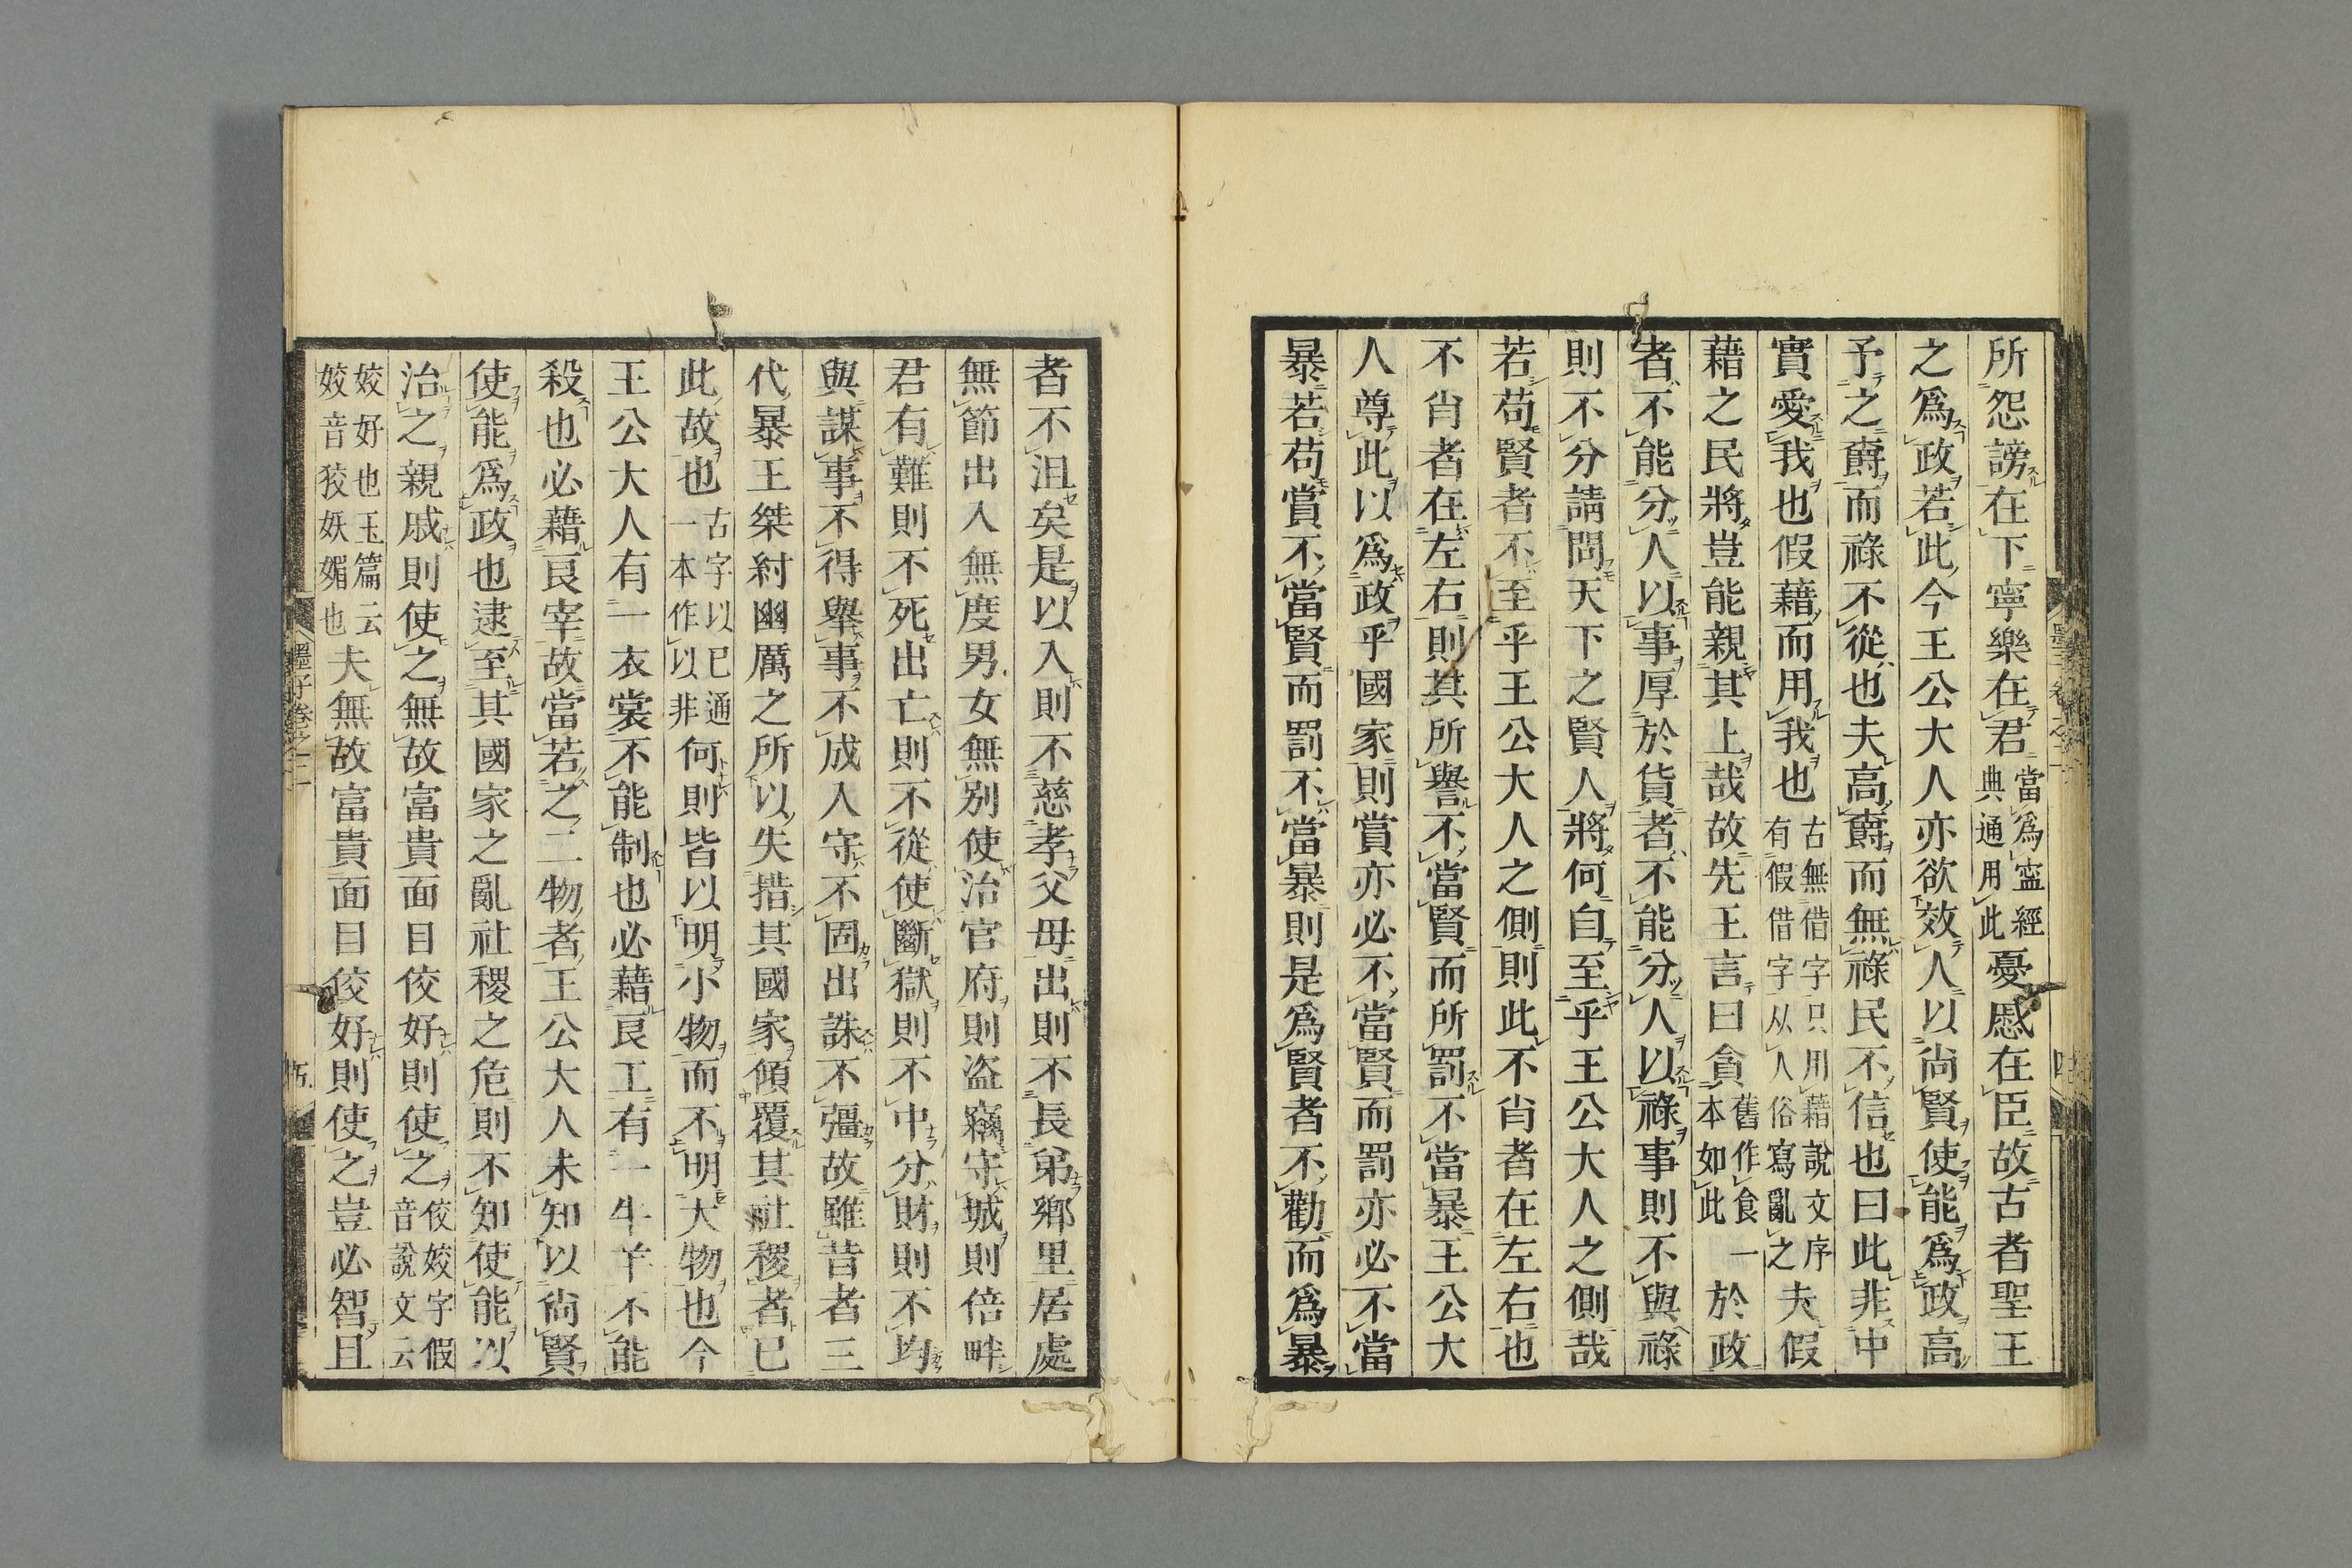 所怨謗在下寧樂在君當爲寍經典通用此憂慼在臣故古者聖王
之爲政若此今王公大人亦欲效人以尚賢使能爲政高
予之爵而祿不從也夫高爵而無祿民不信也曰此非中
實愛我也假藉而用我也古無借字只用藉說文序有假借字从人俗寫亂之夫假
藉之民將豈能親其上哉故先王言曰貪舊作食一本如此於政
者不能分人以事厚於貨者不能分人以祿事則不與祿
則不分請問天下之賢人將何自至乎王公大人之側哉
若苟賢者不至乎王公大人之側則此不肖者在左右也
不肖者在左右則其所譽不當賢而所罰不當暴王公大
人尊此以爲政乎國家則賞亦必不當賢而罰亦必不當
暴若苟賞不當賢而罰不當暴則是爲賢者不勸而爲暴
者不沮矣是以入則不慈孝父母出則不長弟鄉里居處
無節出入無度男女無別使治官府則盜竊守城則倍畔
君有難則不死出亡則不從使斷獄則不中分財則不均
與謀事不得舉事不成入守不固出誅不彊故雖昔者三
代暴王桀紂幽厲之所以失措其國家傾覆其社稷者已
此故也古字以已通一本作以非何則皆以明小物而不明大物也今
王公大人有一衣裳不能制也必藉良工有一牛羊不能
殺也必藉良宰故當若之二物者王公大人未知以尚賢
使能爲政也逮至其國家之亂社稷之危則不知使能以
治之親戚則使之無故富貴面目佼好則使之佼姣字假音說文云
姣好也玉篇云姣音狡妖媚也夫無故富貴面目佼好則使之豈必智且
墨子卷之二
五